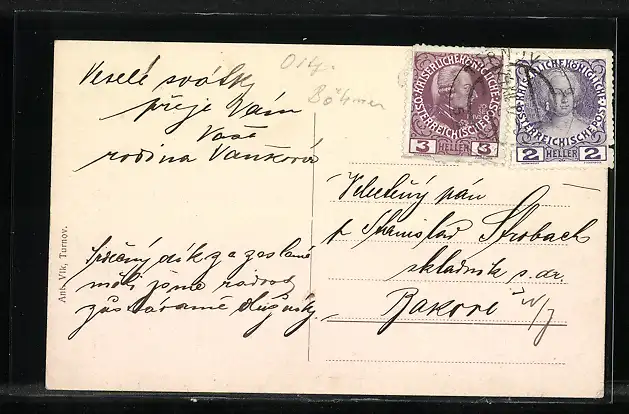 Veselé svátky
přeje Vám
Vaše
rodina Vaňková
Srdečný dík za zaslané
měli jsme radost
zůstáváme dlužníky.
Ant. Vlk, Turnov.
Böhmen
KAISERLICHE KÖNIGLICHE
ÖSTERREICHISCHE POST
3 HELLER 3
KAISERLICHE KÖNIGLICHE
ÖSTERREICHISCHE POST
2 HELLER 2
Velectěný pán
p. Stanislav Strobach
skladník s. dr.
Bakove n/J